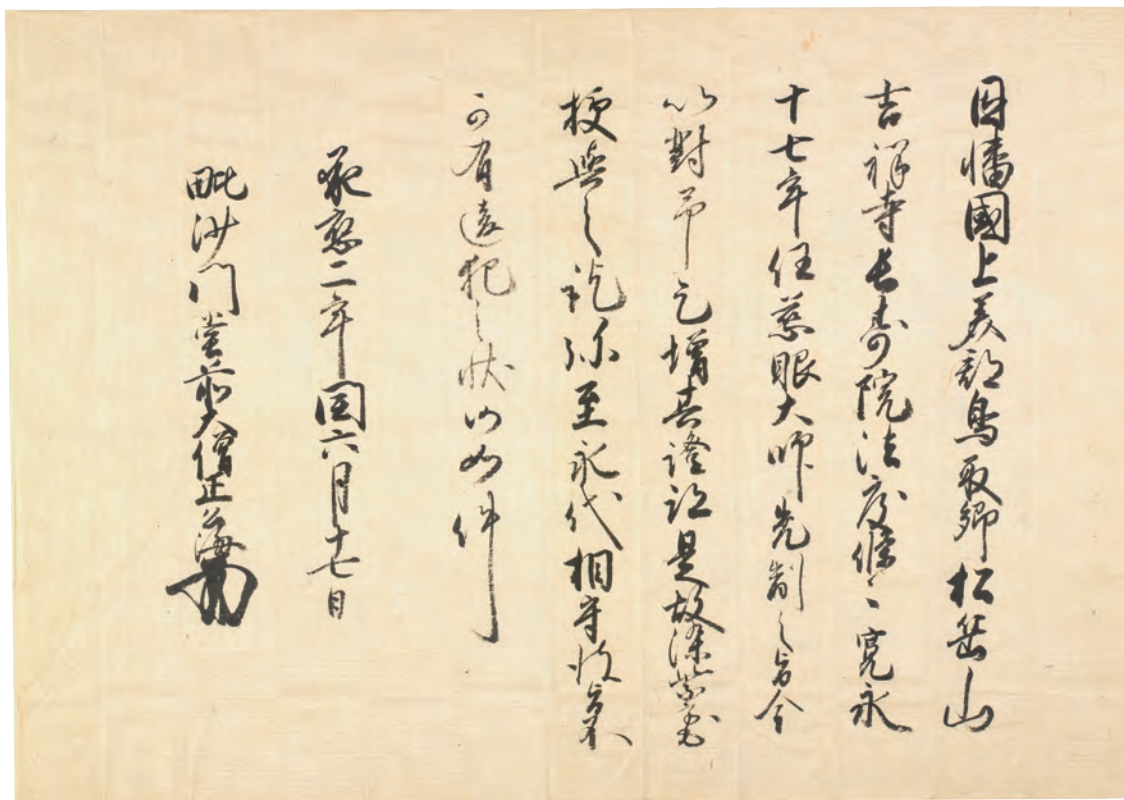 因幡國上美郡鳥取郷松岳山
吉祥寺長寿院法度條々寛永
十七年任慈眼大師先制之旨今
以對帋已増其證訖是故染
梗與之訖弥至永代相守
可有違犯之状仍如件
承應二年閏六月十七日
毗沙門堂前大僧正公海